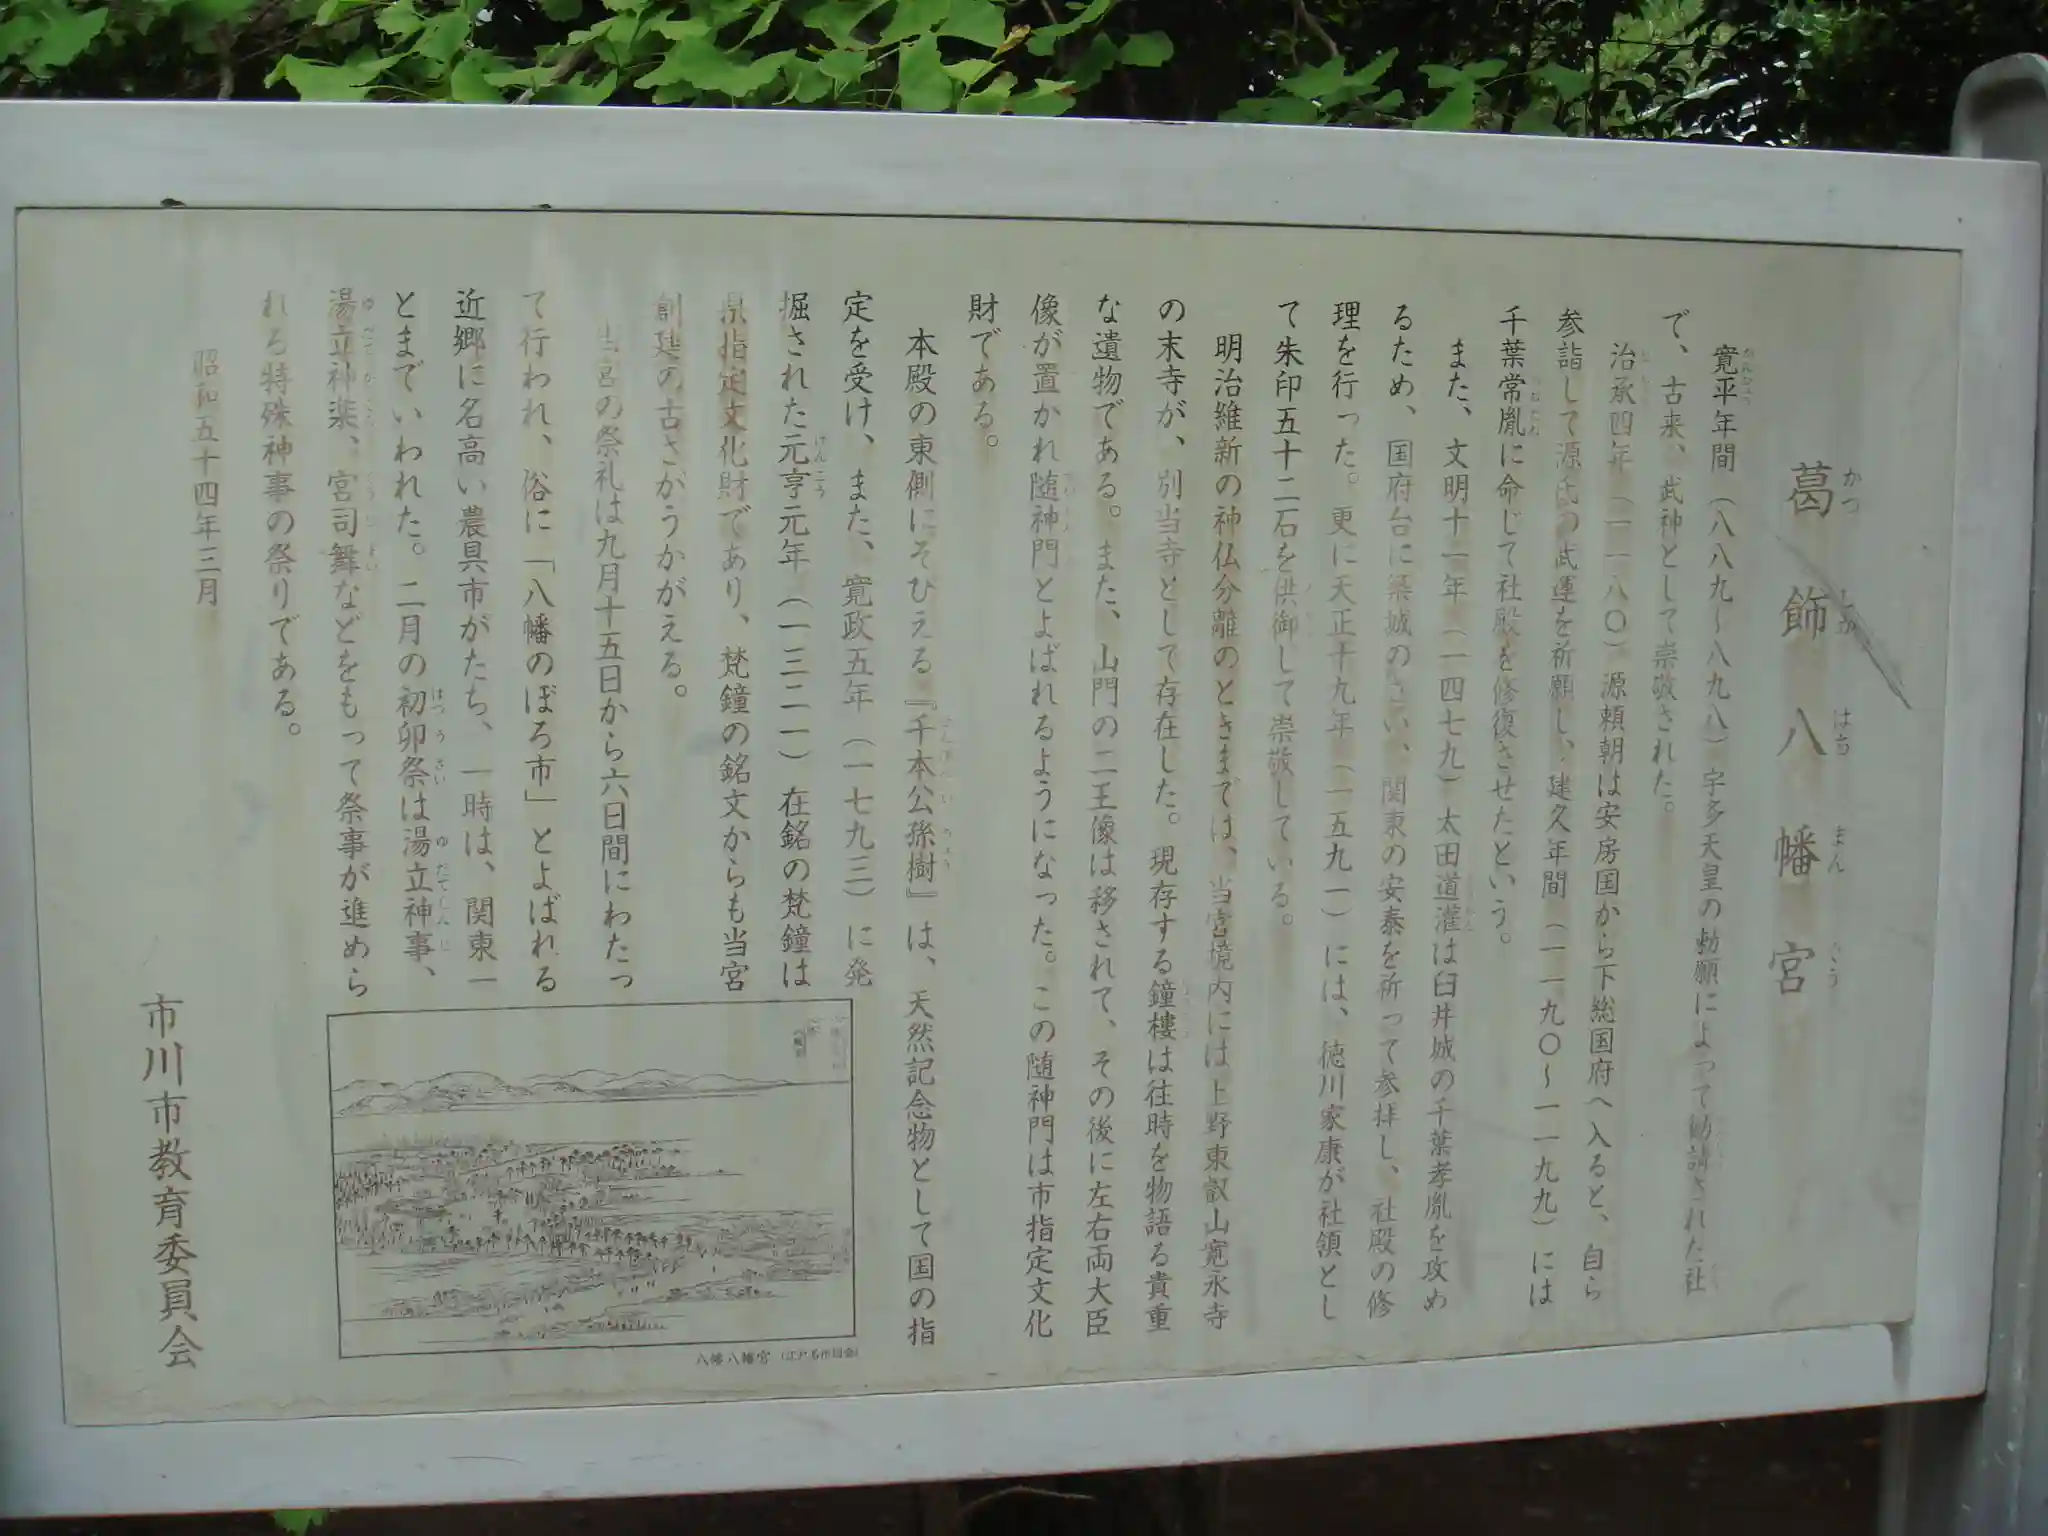 葛飾八幡宮
寛平年間（八八九〜八九八）宇多天皇の勅願によって勧請された社
で、古来、武神として崇敬された。
治承四年（一一八〇）源頼朝は安房国から下総国府へ入ると、自ら
参詣して源氏の武運を祈願し、建久年間（一一九〇〜一一九九）には
千葉常胤に命じて社殿を修復させたという。
また、文明十一年（一四七九）太田道灌は臼井城の千葉孝胤を攻め
るため、国府台に築城のさい、関東の安泰を祈って参拝し、社殿の修
理を行った。更に天正十九年（一五九一）には、徳川家康が社領とし
て朱印五十二石を供御して崇敬している。
明治維新の神仏分離のときまでは、当宮境内には上野東叡山寛永寺
の末寺が、別当寺として存在した。現存する鐘樓は往時を物語る貴重
な遺物である。また、山門の二王像は移されて、その後に左右両大臣
像が置かれ随神門とよばれるようになった。この随神門は市指定文化
財である。
本殿の東側にそびえる『千本公孫樹』は、天然記念物として国の指
定を受け、また、寛政五年（一七九三）に発
掘された元亨元年（一三二一）在銘の梵鐘は
県指定文化財であり、梵鐘の銘文からも当宮
創建の古さがうかがえる。
当宮の祭礼は九月十五日から六日間にわたっ
て行われ、俗に「八幡のぼろ市」とよばれる
近郷に名高い農具市がたち、一時は、関東一
とまでいわれた。二月の初卯祭は湯立神事、
湯立神楽、宮司舞などをもって祭事が進めら
れる特殊神事の祭りである。
昭和五十四年三月
市川市教育委員会
八幡八幡宮（江戸名所図会）